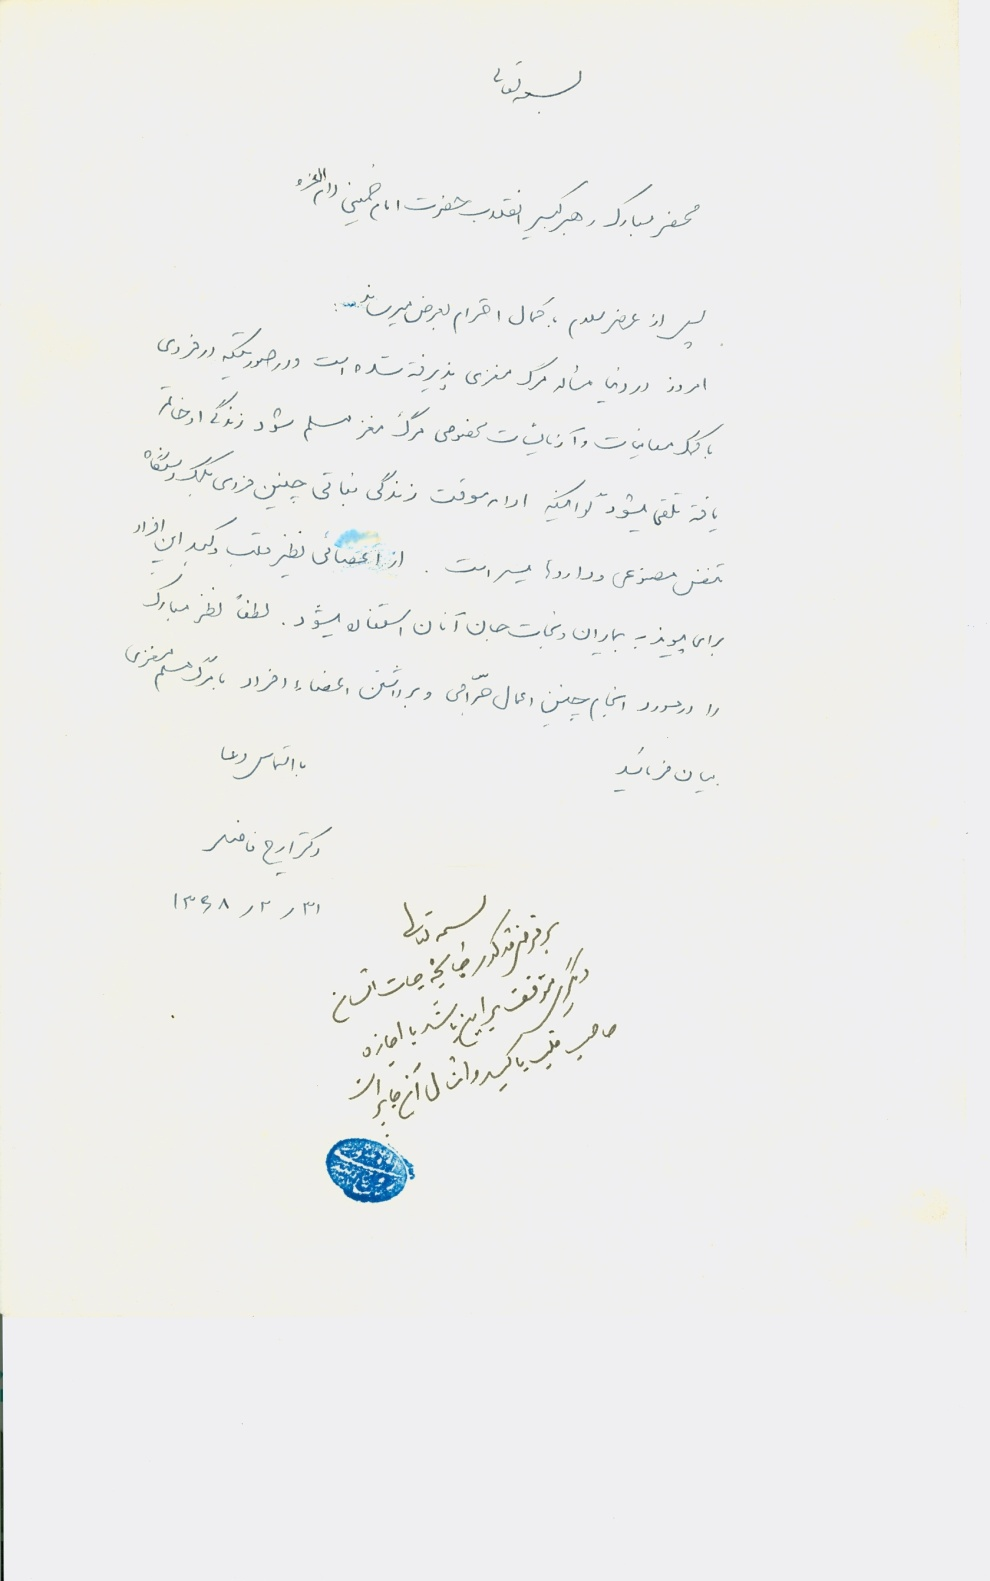 بسمه تعالی
محضر مبارک رهبر کبیر انقلاب حضرت امام خمینی دام‌العزه
پس از عرض سلام با کمال احترام بعرض میرساند:
امروز در دنیا مسأله مرگ مغزی پذیرفته شده است و در صورتیکه در فردی
با کمک معاینات و آزمایشات مخصوص مرگ مغز مسلم شود زندگی او خاتمه
یافته تلقی میشود گو اینکه ادامه موقت زندگی نباتی چنین فردی بکمک دستگاه
تنفس مصنوعی و داروها میسر است. از اعضائی نظیر قلب و کبد این افراد
برای پیوند به بیماران و نجات جان آنان استفاده میشود. لطفاً نظر مبارک
را در مورد انجام چنین اعمال جراحی و برداشتن اعضاء افراد با مرگ مسلم مغزی
بیان فرمائید
با التماس دعا
دکتر ایرج فاضل
۳۱ر۲ر۱۳۶۸
بسمه تعالی
بر فرض مذکور چنانچه حیات انسان
دیگری متوقف بر این باشد با اجازه
صاحب قلب یا کبد و امثال آن جایز است